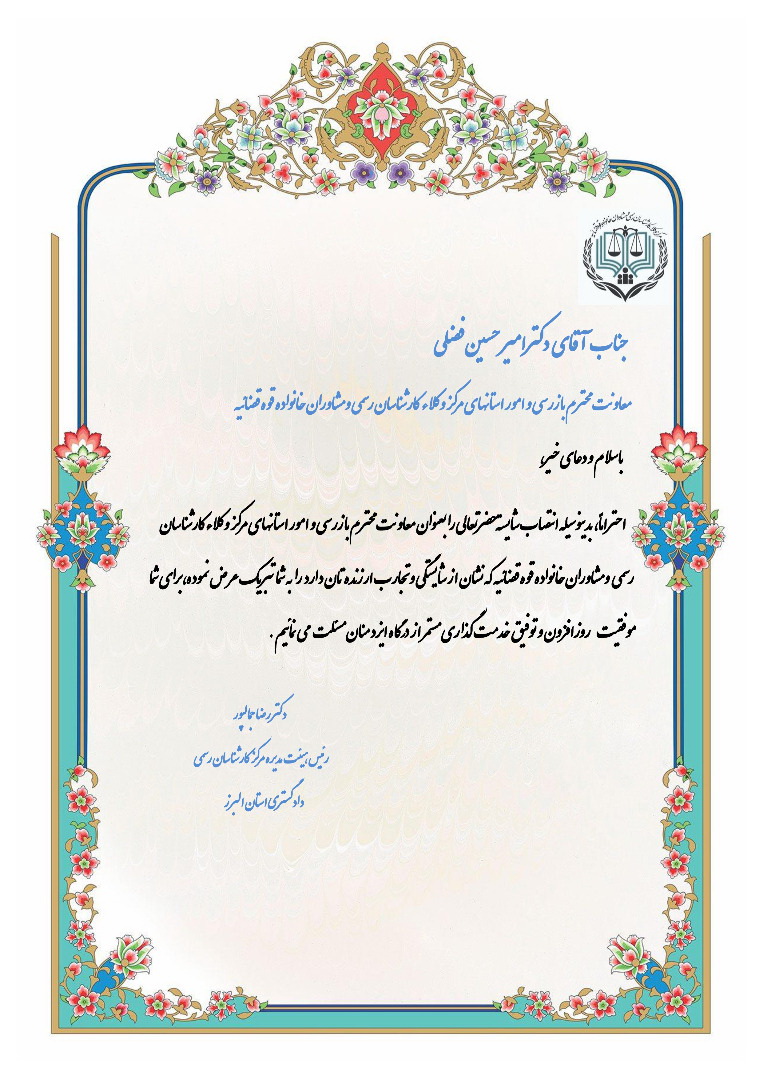 جناب آقای دکتر امیر حسین فضلی
معاونت محترم بازرسی و امور استانهای مرکز وکلاء، کارشناسان رسمی و مشاوران خانواده قوه قضائیه
باسلام و دعای خیر،
احتراماً، بدینوسیله انتصاب شایسته حضرتعالی را بعنوان معاونت محترم بازرسی و امور استانهای مرکز وکلاء، کارشناسان
رسمی و مشاوران خانواده قوه قضائیه که نشان از شایستگی و تجارب ارزنده تان دارد را به شما تبریک عرض نموده، برای شما
موفقیت روزافزون و توفیق خدمت گذاری مستمر از درگاه ایزد منان مسئلت می نمائیم .
دکتر رضا جمالپور
رئیس هیئت مدیره مرکز کارشناسان رسمی
دادگستری استان البرز